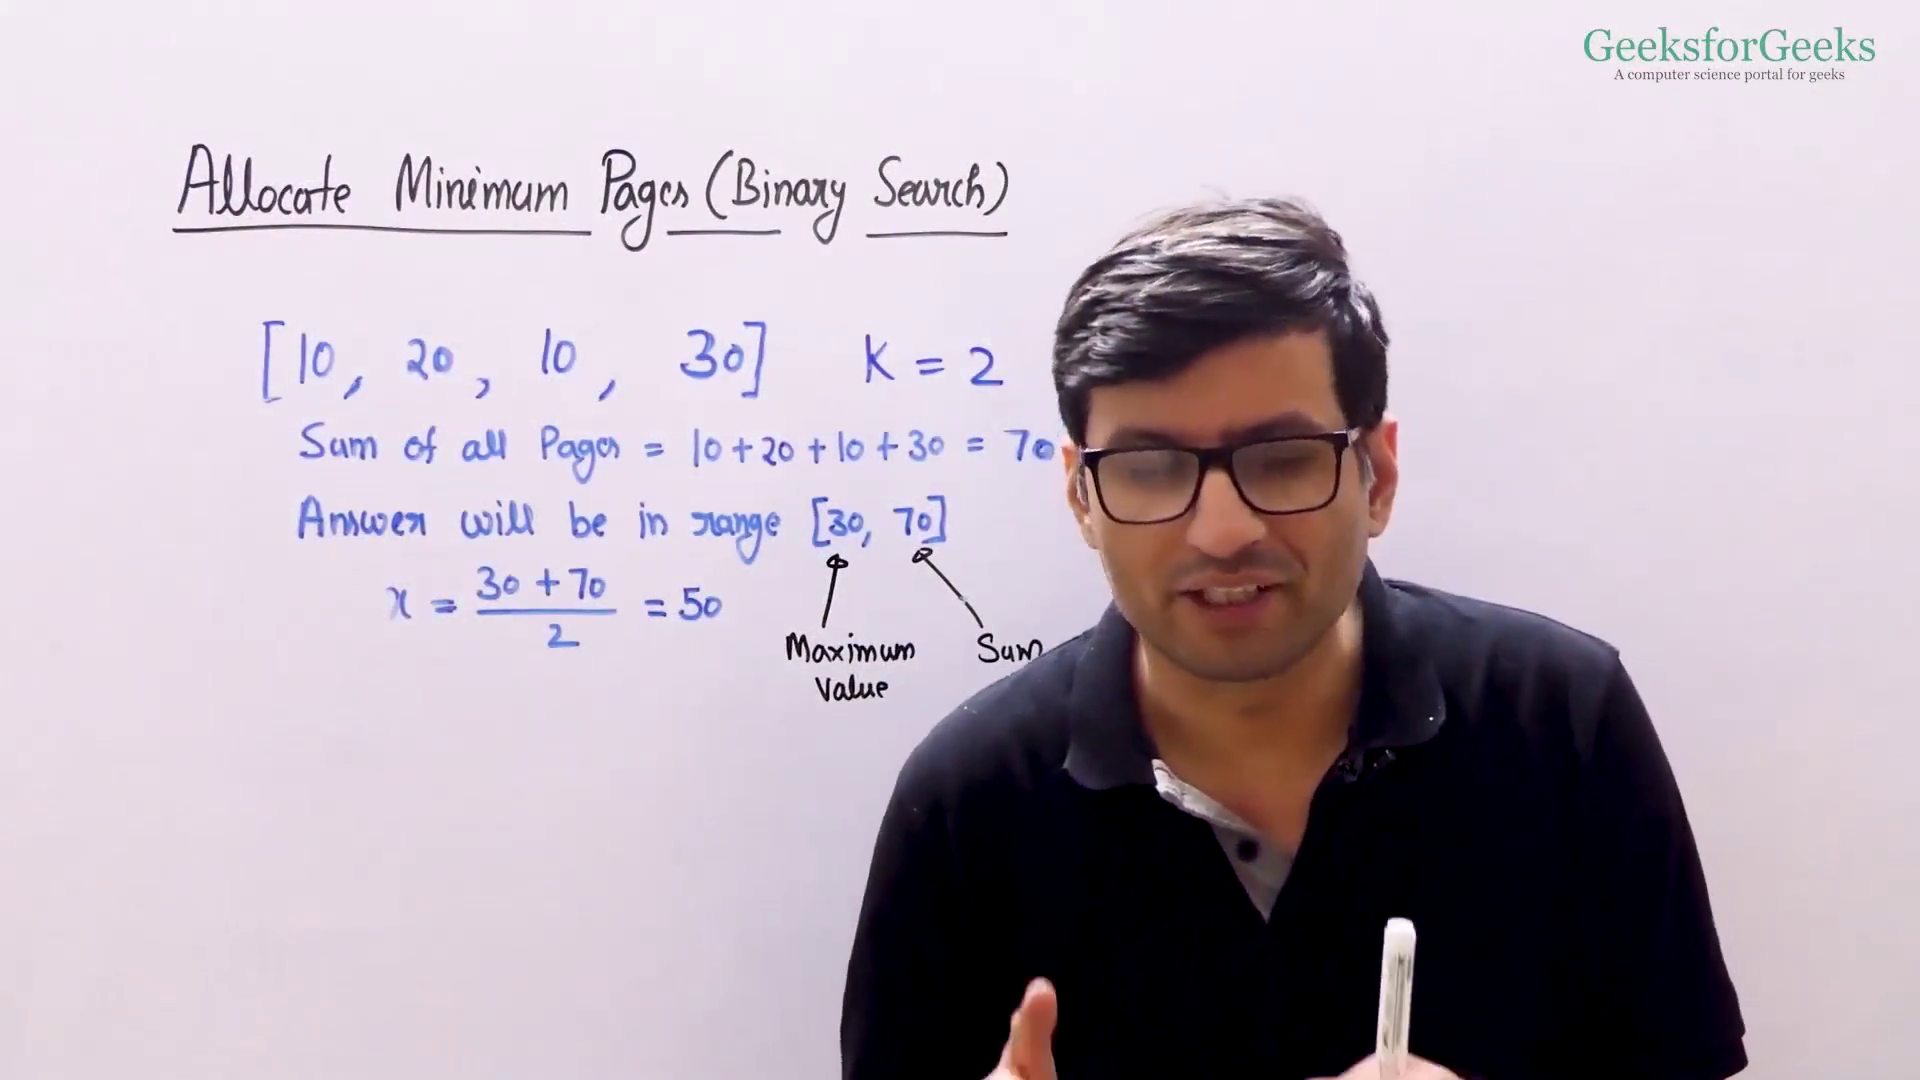 GeeksforGeeks
A computer science portal for geeks
Allocate Minimum Pages (Binary Search)
[10, 20, 10, 30] K = 2
Sum of all Pages = 10+20+10+30 = 70
Answer will be in range [30, 70]
x = 30 + 70 / 2 = 50
Maximum Value
Sum